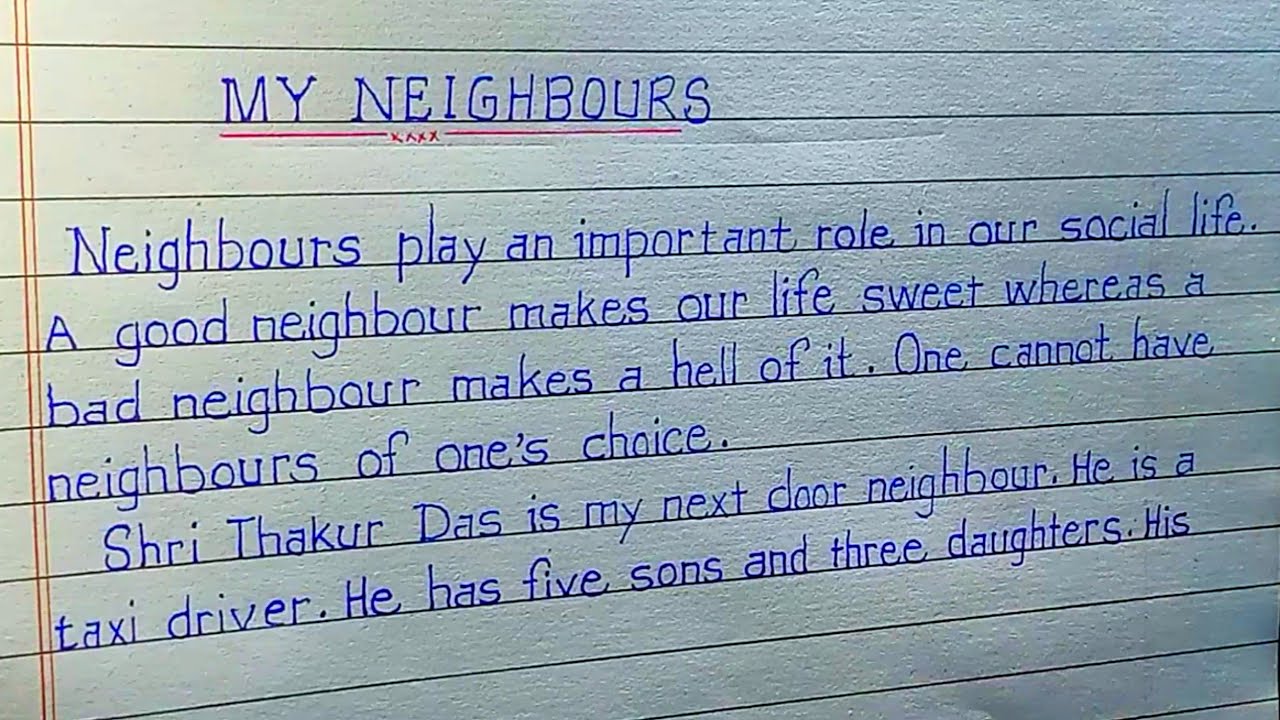 MY NEIGHBOURS
xxxx
Neighbours play an important role in our social life.
A good neighbour makes our life sweet whereas a
bad neighbour makes a hell of it. One cannot have
neighbours of one's choice.
Shri Thakur Das is my next door neighbour. He is a
taxi driver. He has five sons and three daughters. His